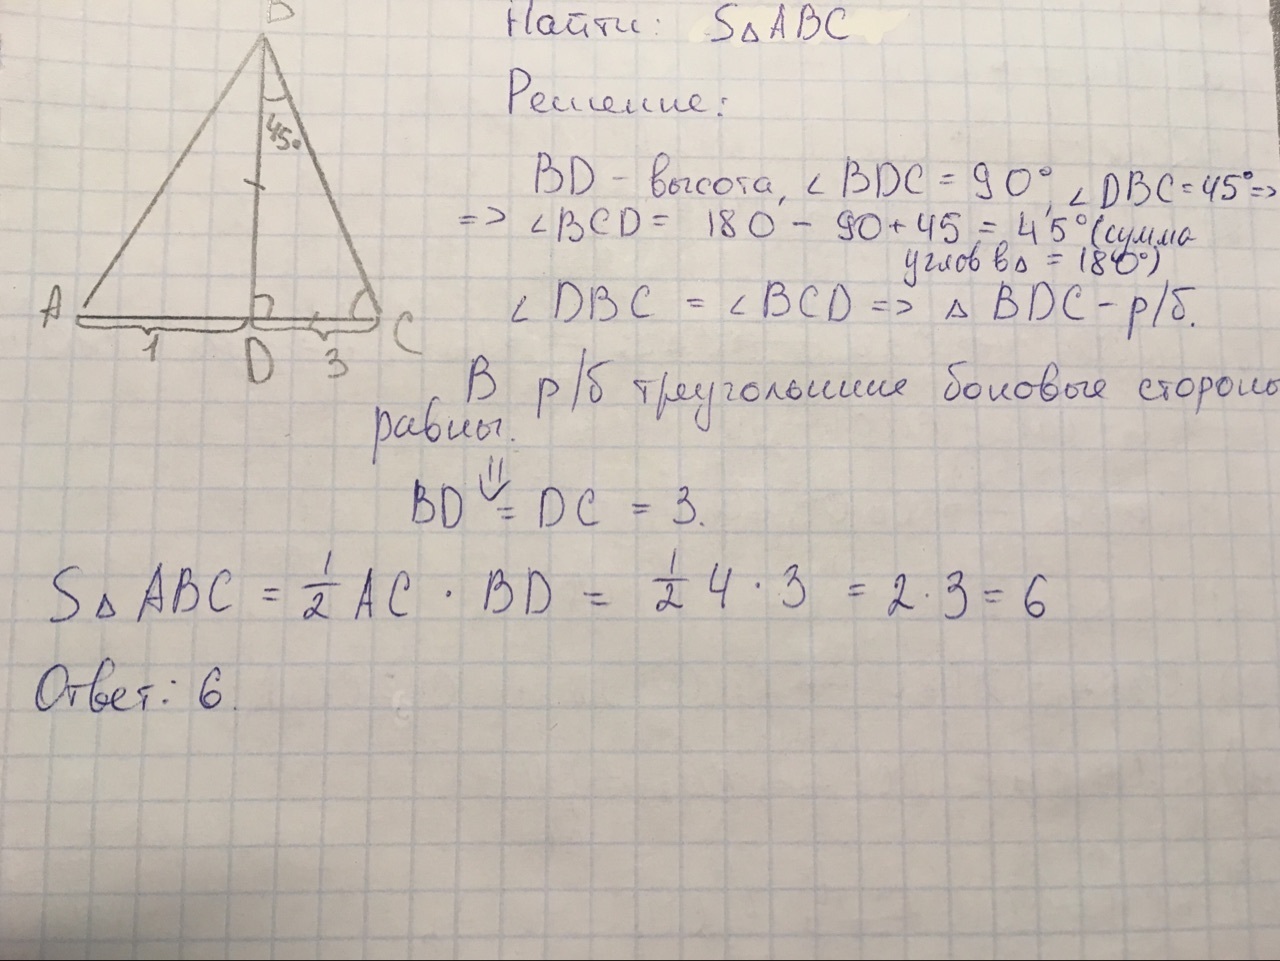 Найти: S△ABC
Решение:
B
45°
BD - высота, ∠BDC = 90°, ∠DBC = 45° =>
=> ∠BCD = 180 - 90 + 45 = 45° (сумма
углов в △ = 180°)
∠DBC = ∠BCD => △ BDC - р/б.
A
1
D
3
C
В р/б треугольнике боковые стороны
равны.
BD = DC = 3.
S△ABC = 1/2 AC · BD = 1/2 4 · 3 = 2 · 3 = 6
Ответ: 6.